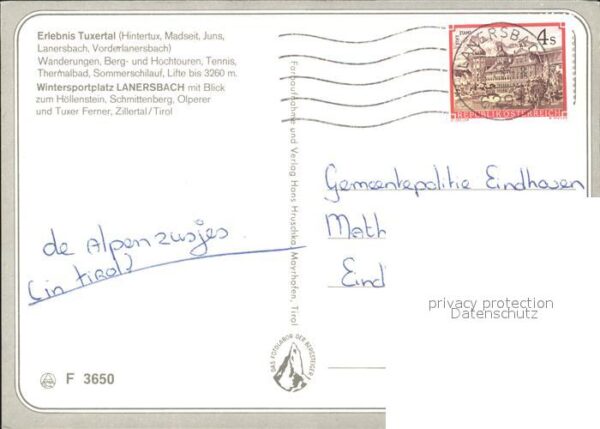 Erlebnis Tuxertal (Hintertux, Madseit, Juns,
Lanersbach, Vorderlanersbach)
Wanderungen, Berg- und Hochtouren, Tennis,
Thermalbad, Sommerschilauf, Lifte bis 3260 m.
Wintersportplatz LANERSBACH mit Blick
zum Höllenstein, Schmittenberg, Olperer
und Tuxer Ferner, Zillertal/Tirol
de Alpenzusjes.
(in tirol)
F 3650
Fotoaufnahme und Verlag Hans Hruschka, Mayrhofen, Tirol
DAS FOTOLABOR DER BERGSTEIGER
LANERSBACH
4s
REPUBLIK ÖSTERREICH
Gemeentepolitie Eindhoven
Math
Eind
privacy protection
Datenschutz